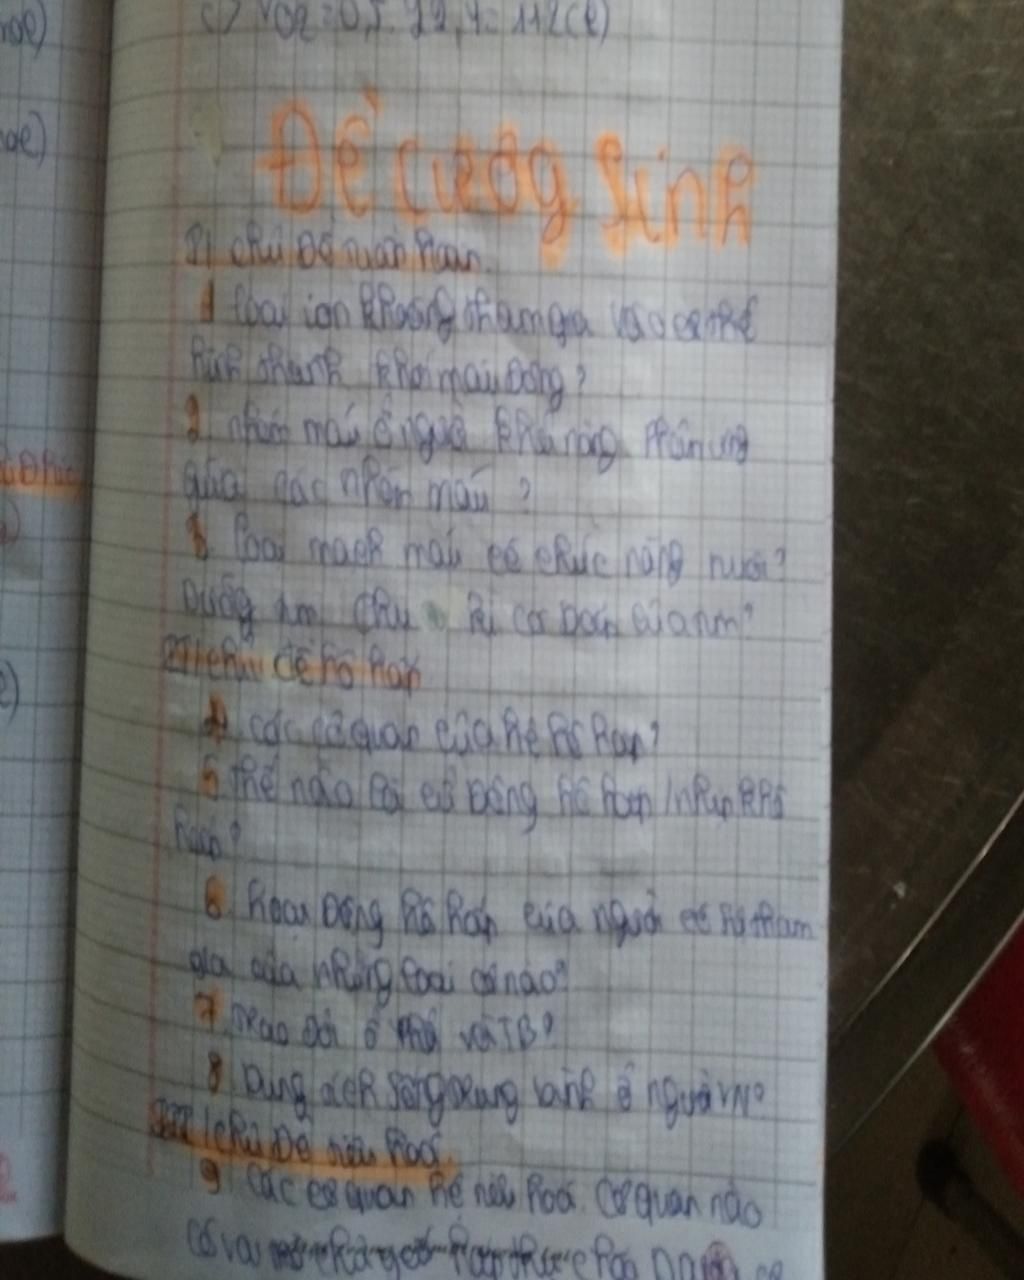 c) VO2 = 0,5. 22,4 = 112(l)
Đề cương Sinh
I) chủ đề tuần hoàn.
1 loại ion khoáng tham gia vào cơ chế
hình thành khối máu đông?
2 nhóm máu ở người khả năng phản ứng
giữa các nhóm máu ?
3. loại mạch máu có chức năng nuôi?
Dưỡng tim chu kì co dãn của tim?
II) chủ đề hô hấp
4 các cơ quan của hệ hô hấp?
5 thế nào là cử động hô hấp / nhịp hô
hấp?
6. hoạt động hô hấp của người có sự tham
gia của những loại cơ nào?
7. trao đổi ở phổi và TB?
8 Dung tích sống trung bình ở người VN?
III) chủ đề tiêu hoá.
9 Các cơ quan hệ tiêu hoá. Cơ quan nào
có vai